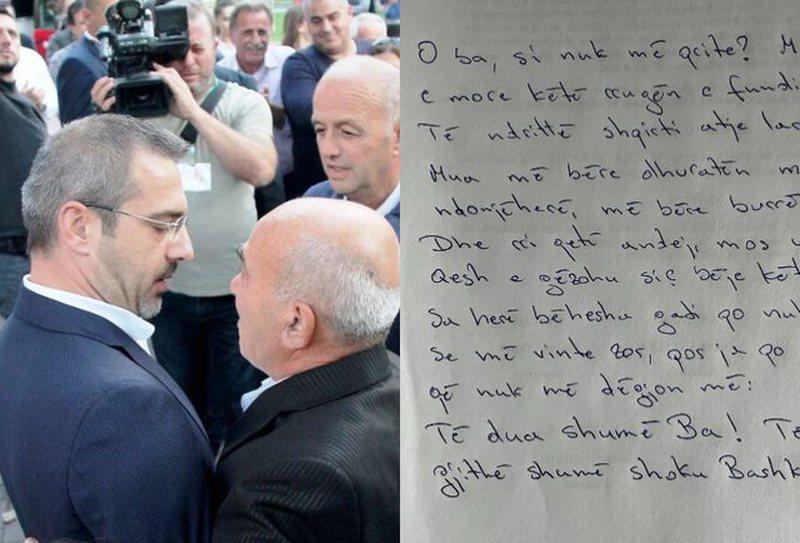 O ba, si nuk më qrite? M
e more këtë rrugën e fundi
Të ndrittë shpirti atje lar
Mua më bëre dhuratën m
ndonjëherë, më bëre burrë
Dhe rri qetë andej, mos
Qesh e gëzohu siç bëje kët
Sa herë bëhesha gadi po nuk
Se më vinte zor, por ja po
që nuk më dëgjon më:
Të dua shumë Ba! Të
gjithë shumë shoku Bashk